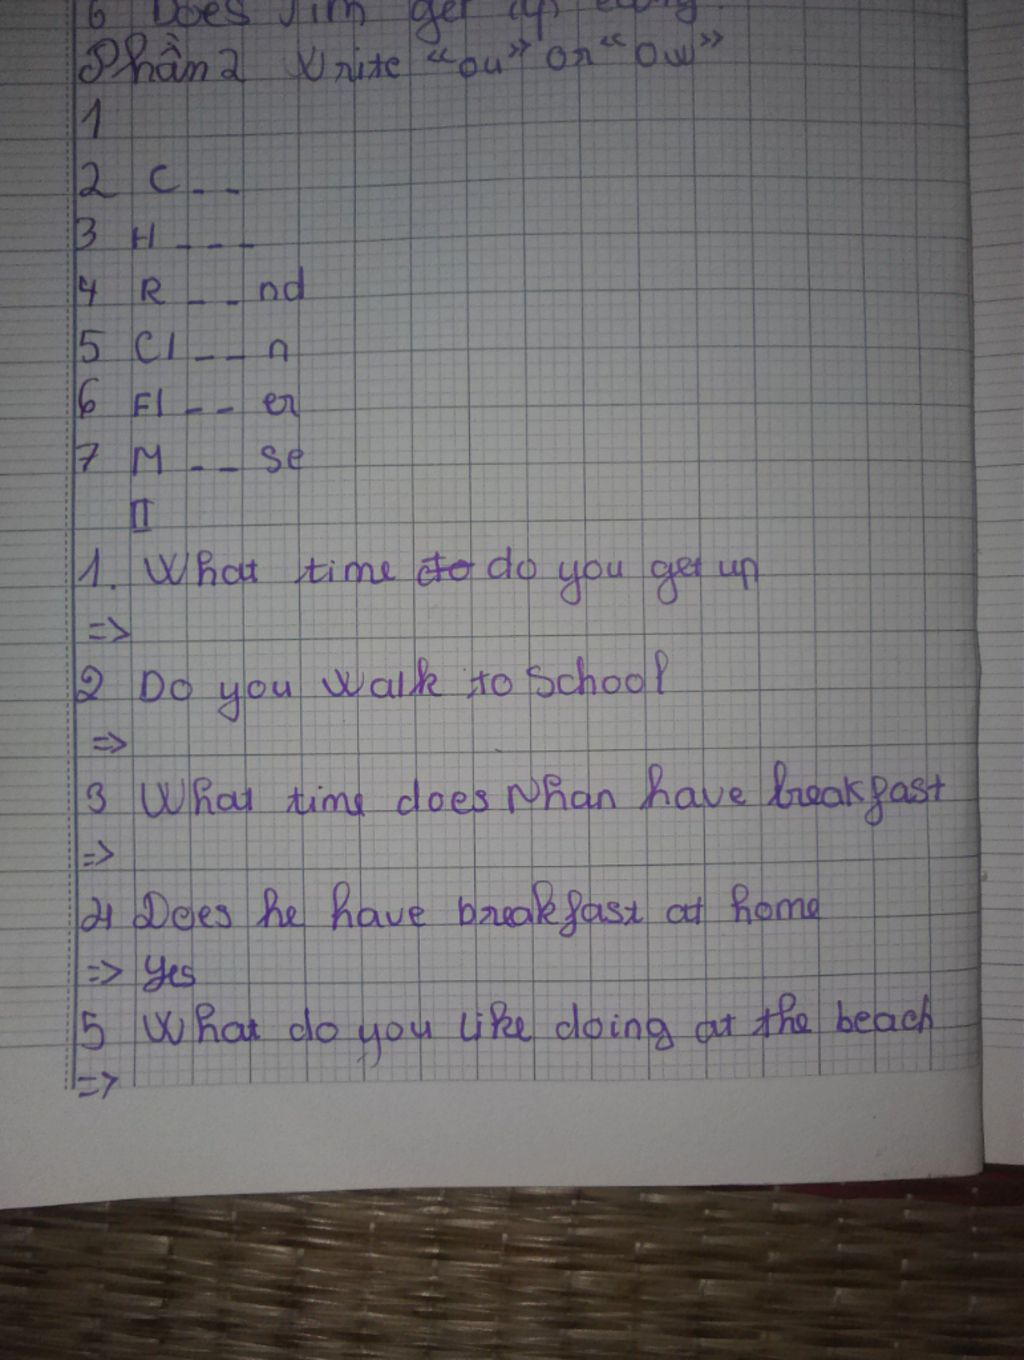 6 Does Jim get up early
Phần 2 Write "ou" or "ow"
1
2 C _ _
3 H _ _ _
4 R _ _ nd
5 Cl _ _ n
6 Fl _ _ er
7 M _ _ se
II
1. What time do you get up
=>
2 Do you walk to school
=>
3 What time does Nhan have breakfast
=>
4 Does he have breakfast at home
=> yes
5 What do you like doing at the beach
=>